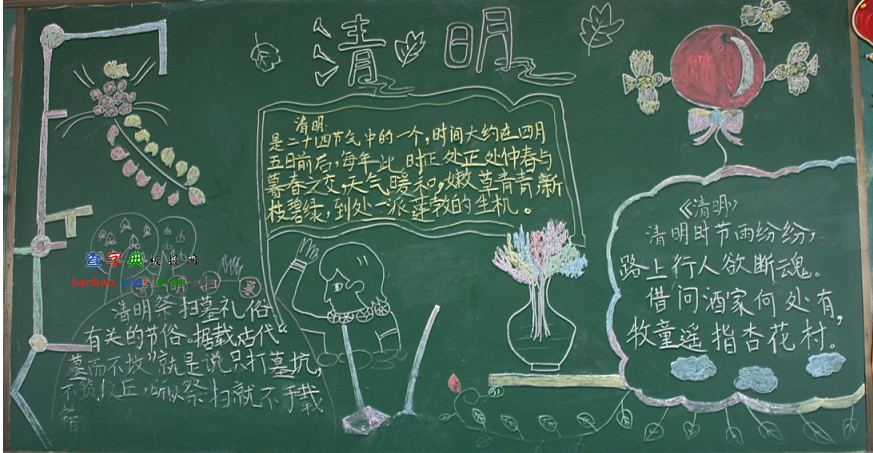 清明
清明
是二十四节气中的一个，时间大约在四月
五日前后，每年此时正处正处仲春与
暮春之交，天气暖和，嫩草青青，新
枝碧绿，到处一派蓬敦的生机。
《清明》
清明时节雨纷纷，
路上行人欲断魂。
借问酒家何处有，
牧童遥指杏花村。
查字典
扫墓
清明祭扫墓礼俗
有关的节俗。据载古代“
墓而不坟”就是说只打墓坑，
丘，所以祭扫就不于载